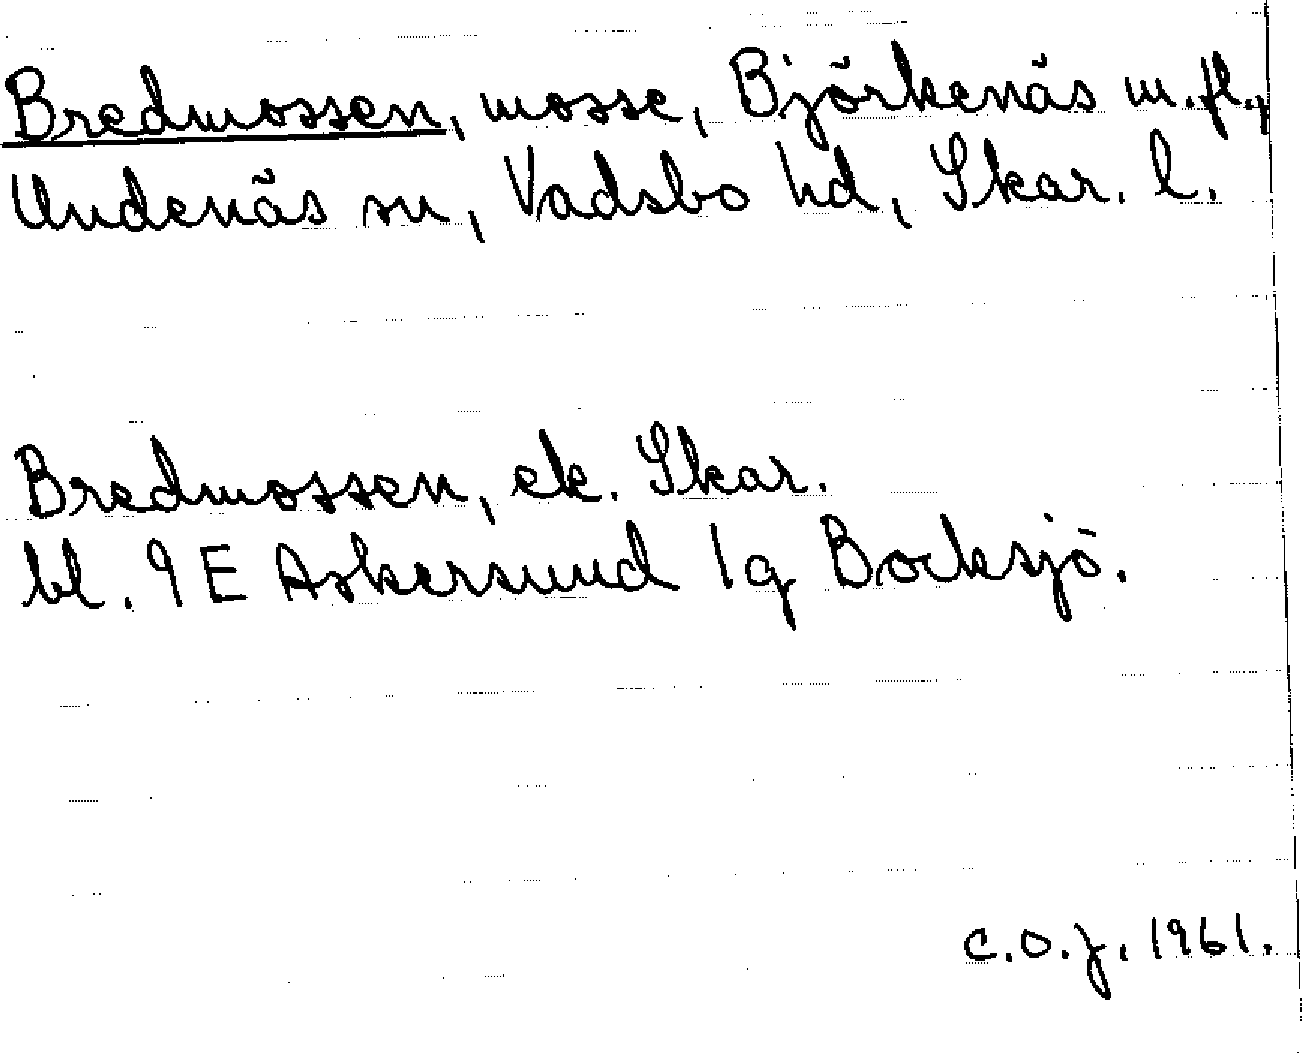 Bredmossen, mosse, Björkenäs m.fl.,
Undenäs sn, Vadsbo hd, Skar. l.
Bredmossen, ek. Skar.
bl. 9E Askersund 1g Bocksjö.
C.O.J. 1961.